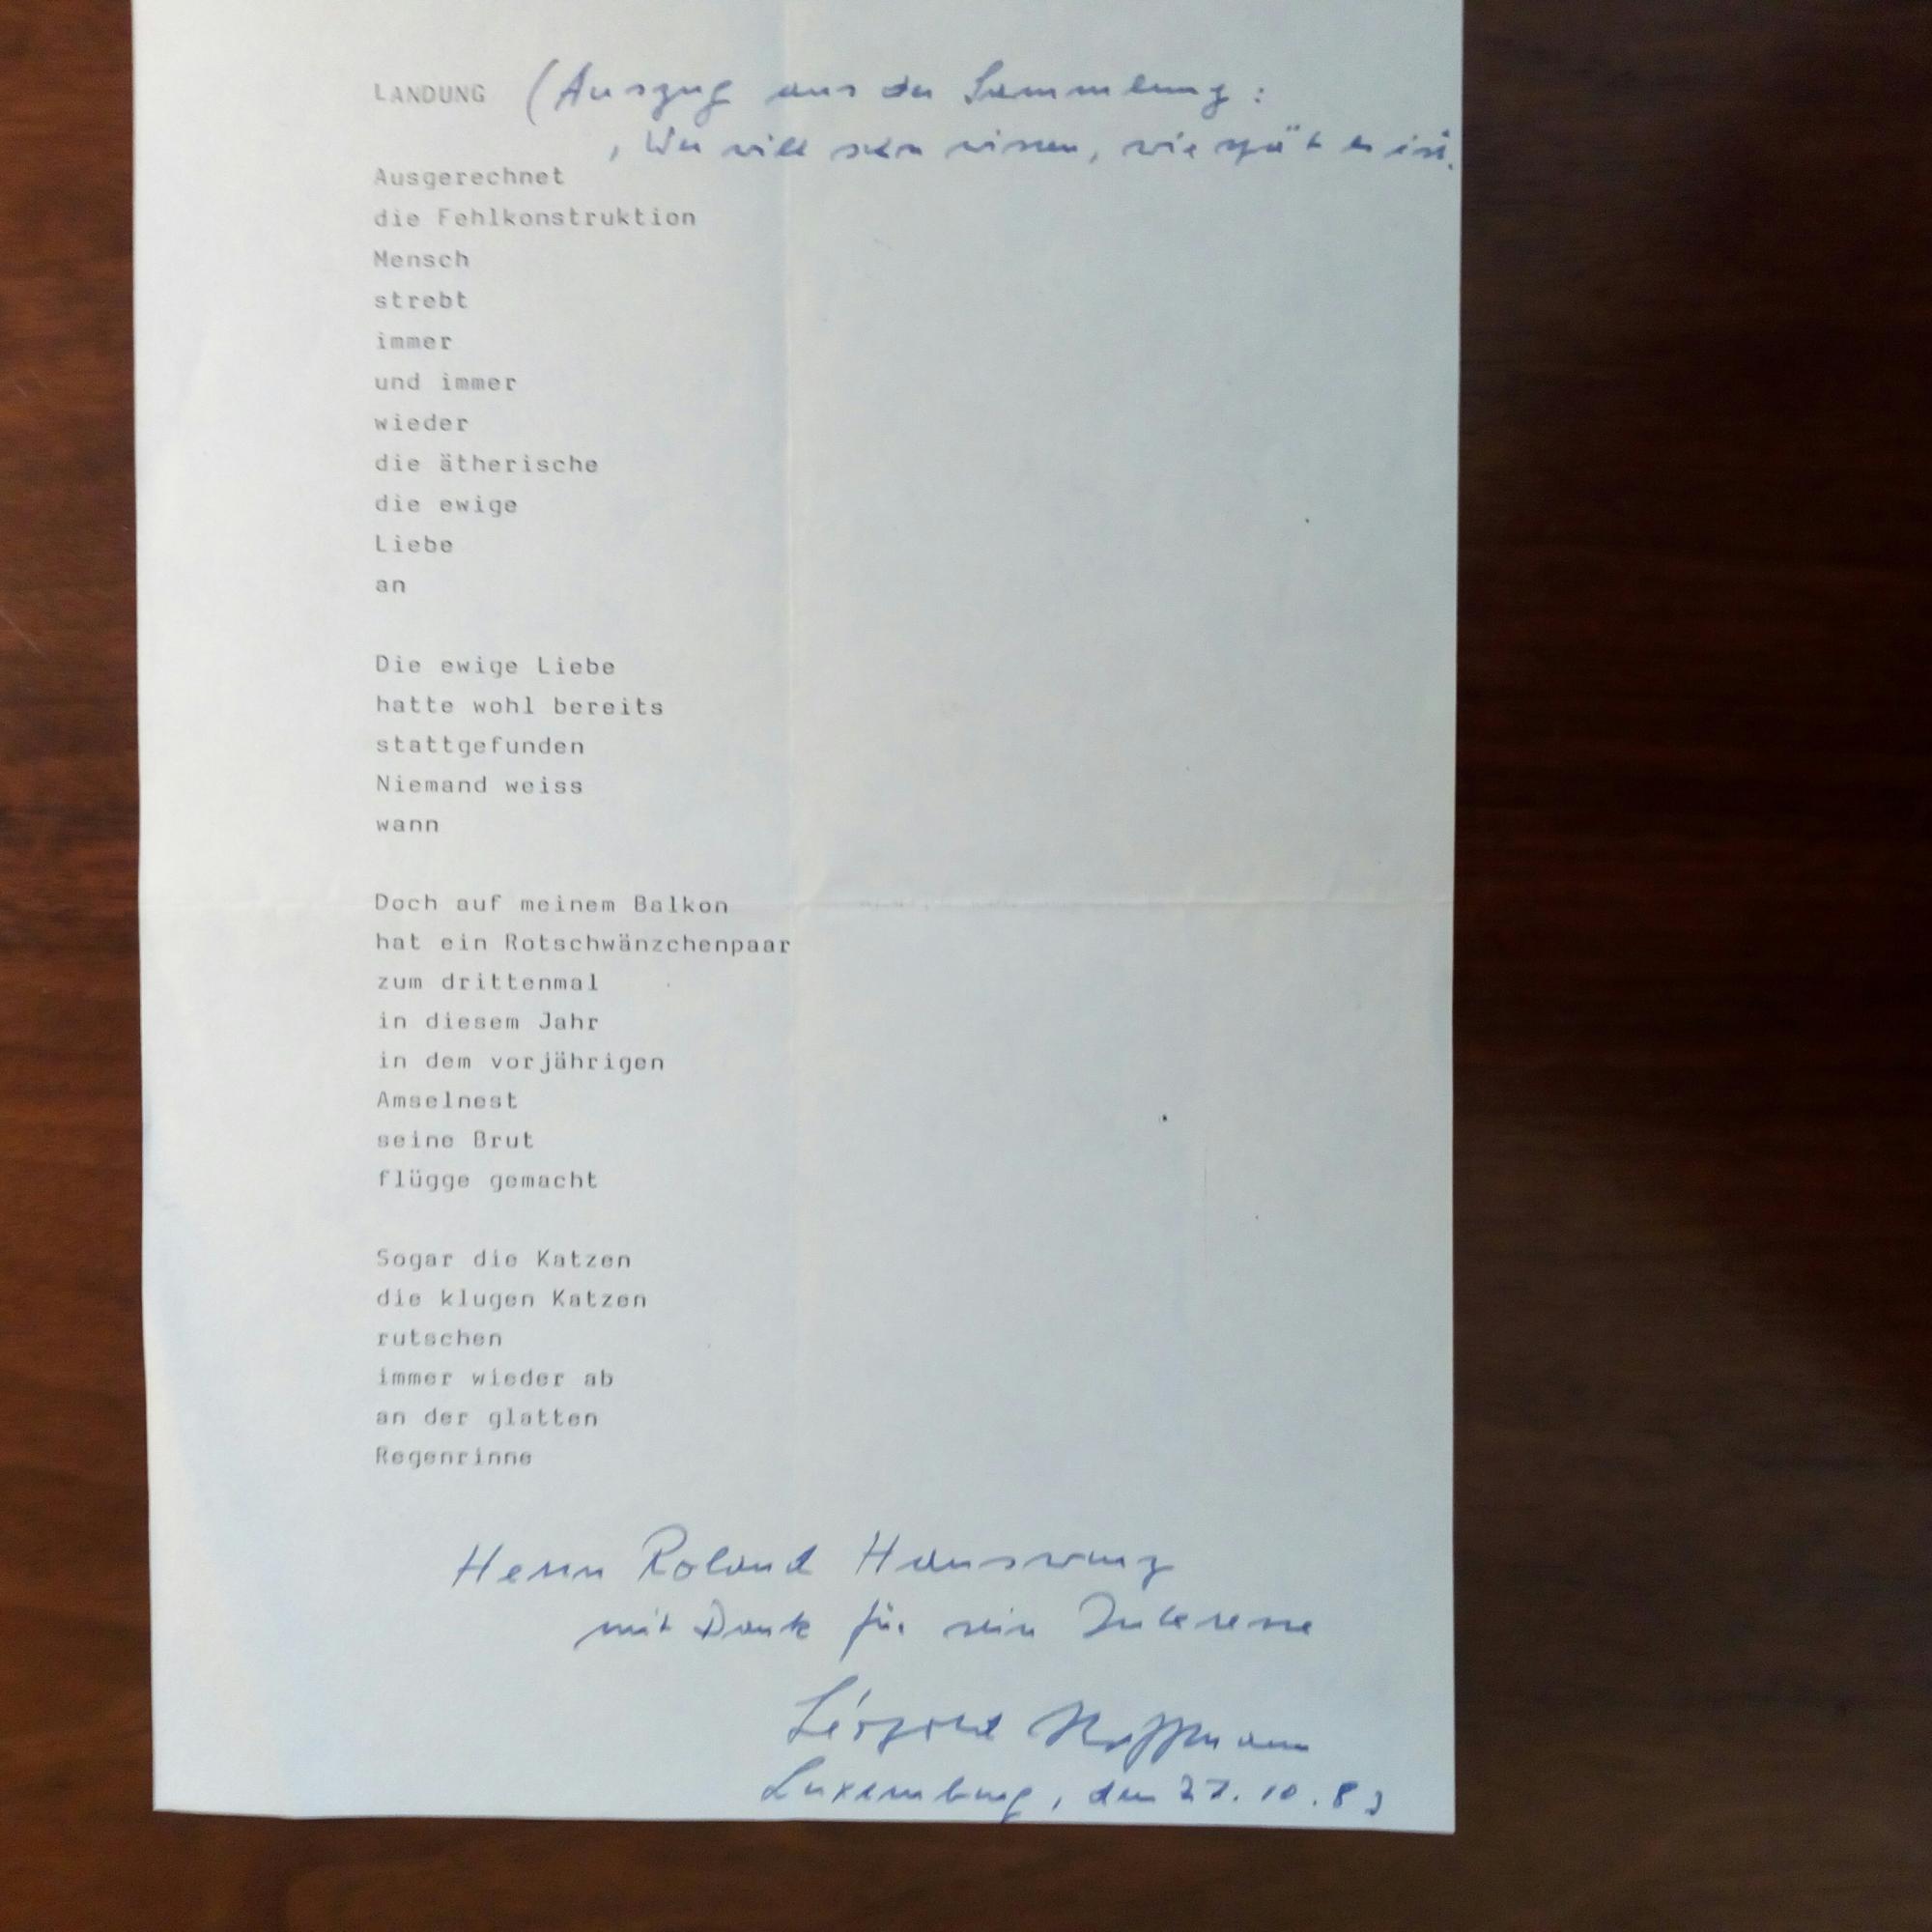 LANDUNG (Auszug aus der Sammlung:
‚Wer will schon wissen, wie spät es ist.
Ausgerechnet
die Fehlkonstruktion
Mensch
strebt
immer
und immer
wieder
die ätherische
die ewige
Liebe
an
Die ewige Liebe
hatte wohl bereits
stattgefunden
Niemand weiss
wann
Doch auf meinem Balkon
hat ein Rotschwänzchenpaar
zum drittenmal
in diesem Jahr
in dem vorjährigen
Amselnest
seine Brut
flügge gemacht
Sogar die Katzen
die klugen Katzen
rutschen
immer wieder ab
an der glatten
Regenrinne
Herrn Roland
mit Dank für sein Interesse
Léopold Hoffmann
Luxemburg, den 27.10.83